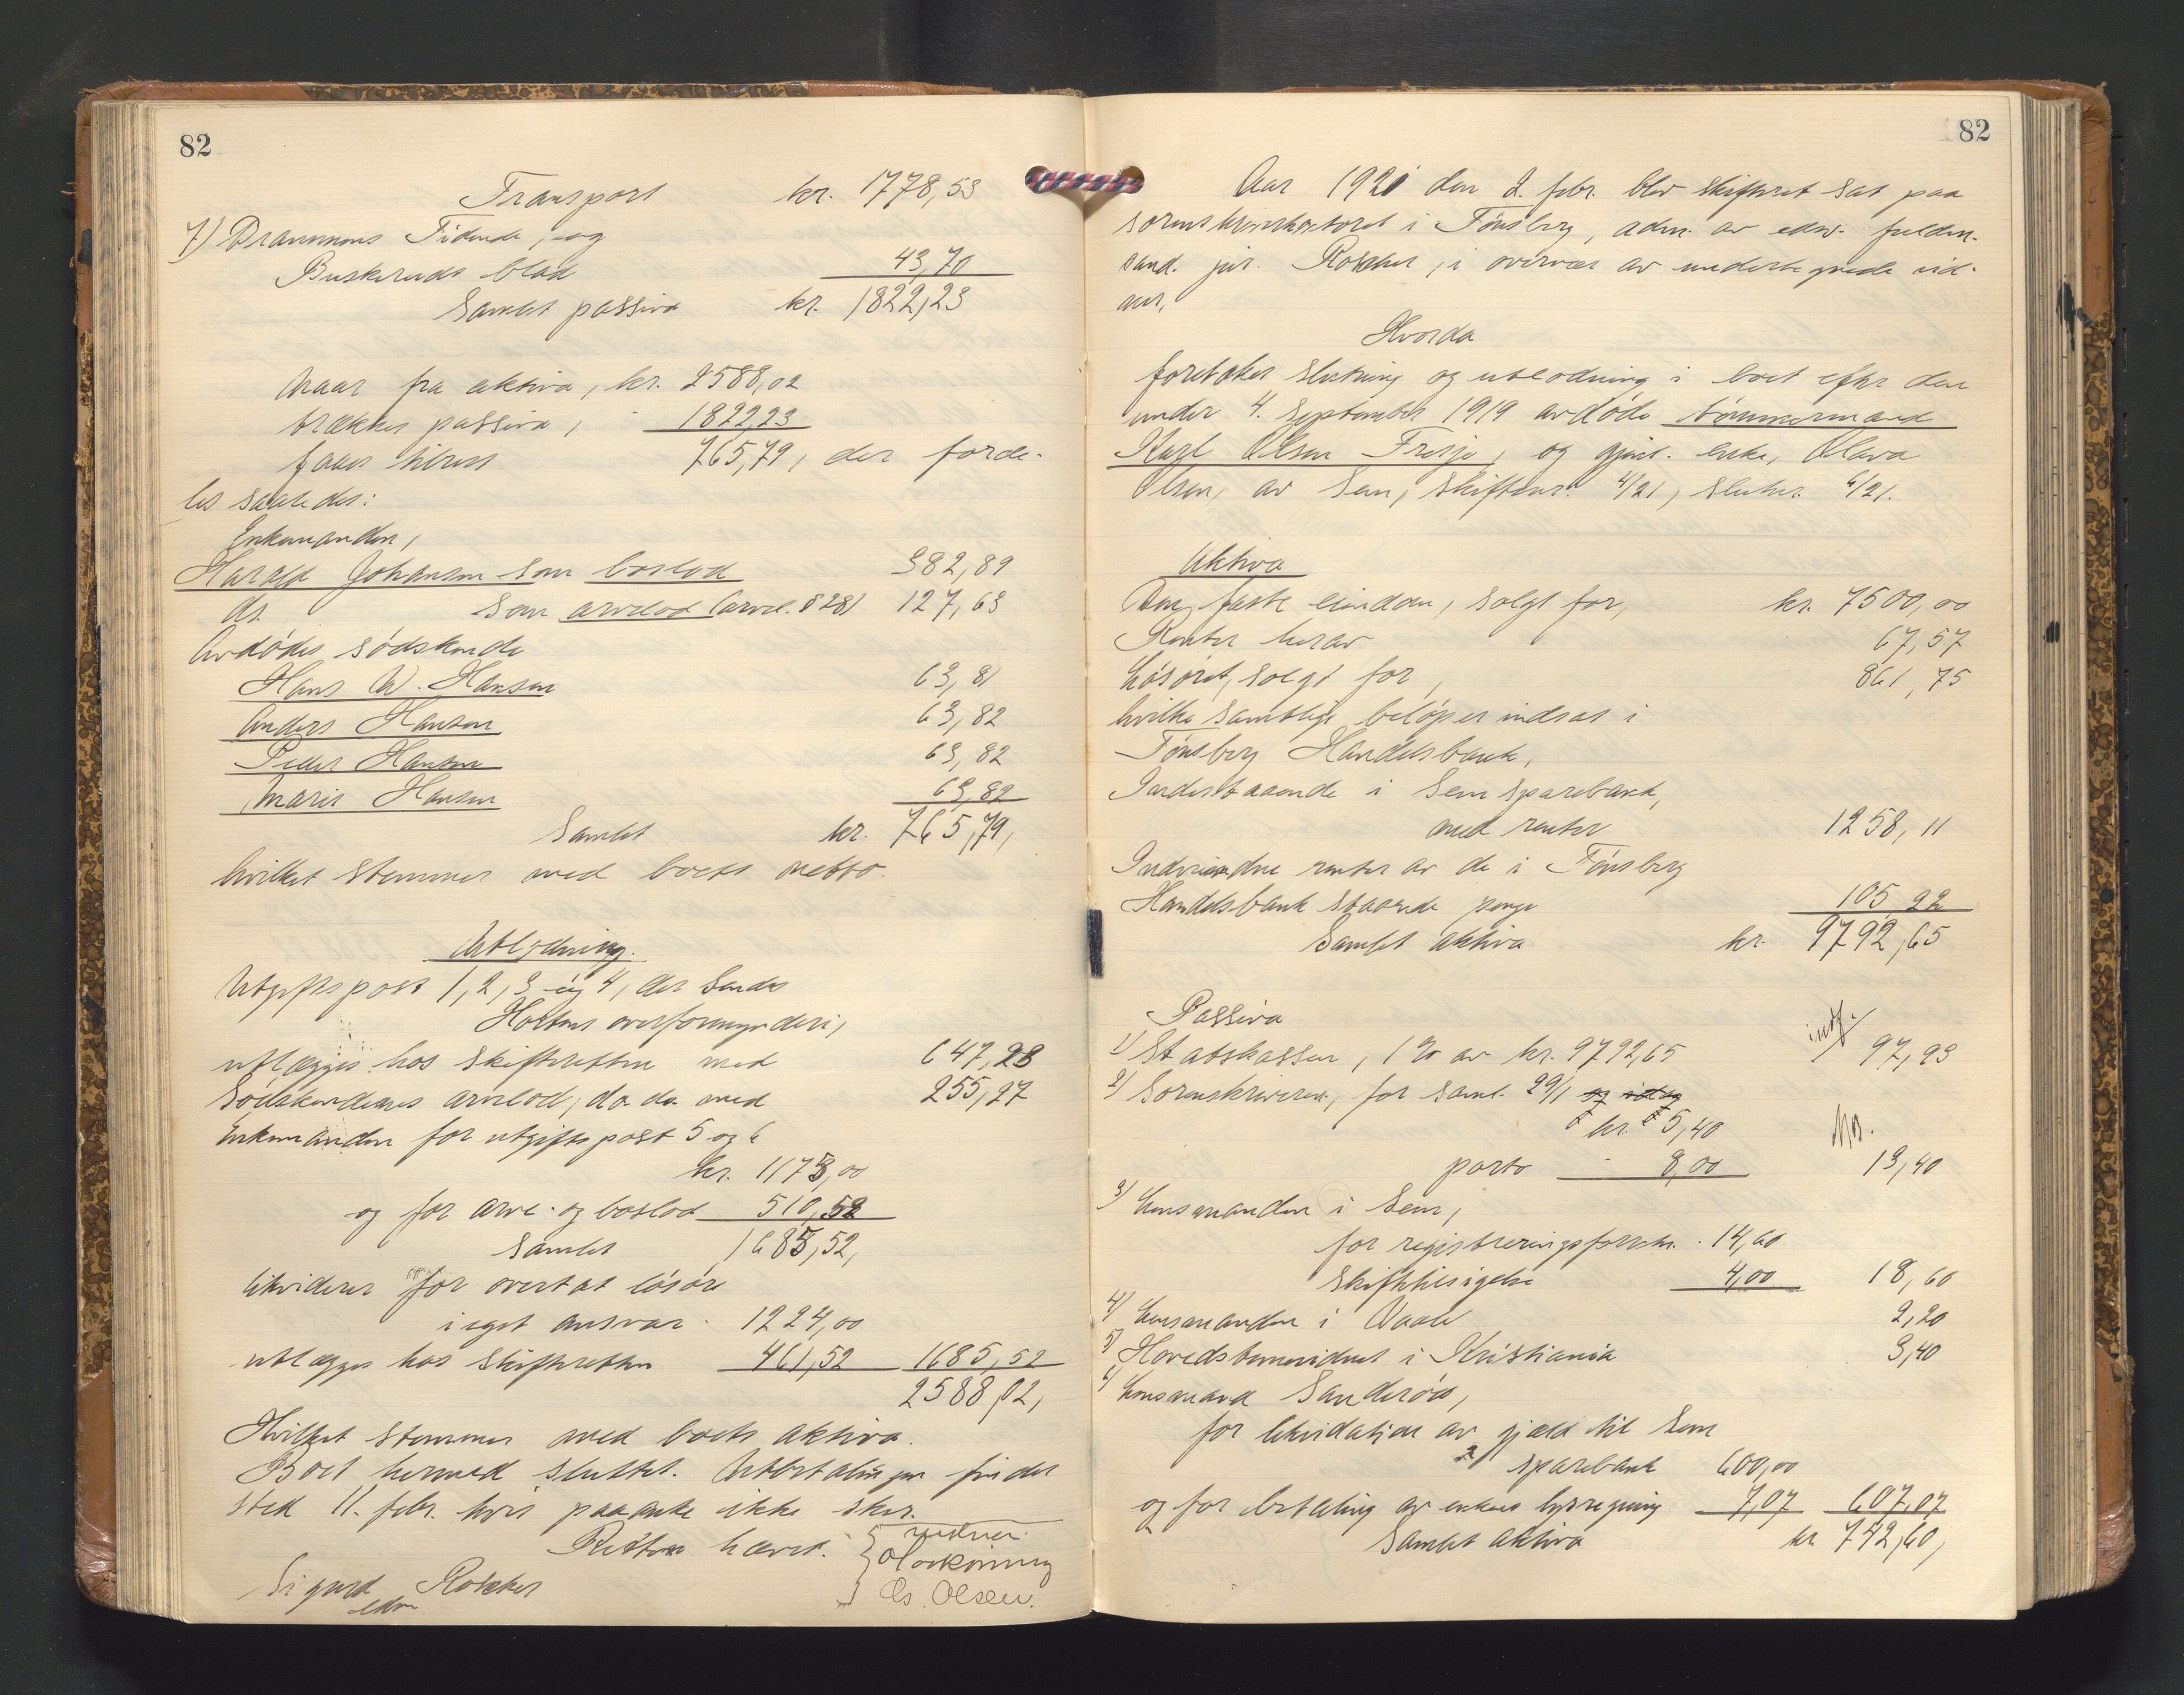 82
Transport kr. 1778,53
7) Drammens Tidende, og
Buskeruds blad 43,70
Samlet passiva kr. 1822,23
Naar fra aktiva, kr. 2588,02
trækkes passiva, - 1822,23
faaes tilrest 765,79, der forde-
les saaledes:
Enkemanden,
Harald Johansen som boslod 382,89
ds. som arvelod (arvel. § 28) 127,63
Avdødes sødskende
Hans W. Hansen 63,81
Anders Hansen 63,82
Peder Hansen 63,82
Marie Hansen 63,82
Samlet kr. 765,79,
hvilket stemmer med boets netto.
Utlodning.
Utgiftspost 1, 2, 3 og 4, der sendes
Hortens overformynderi,
utlægges hos skifteretten med 647,23
Sødskendenes arvelod, do do med 255,27
Enkemanden for utgiftspost 5 og 6
kr. 1175,00
og for arve- og boslod 510,52
Samlet 1685,52,
likvideres for overtat løsøre
i eget ansvar - 1224,00
utlægges hos skifteretten 461,52 1685,52
2588,02,
Hvilket stemmer med boets aktiva.
Boet hermed sluttet. Utbetalingen finder
sted 11. febr. hvis paaanke ikke sker.
Retten hævet.
Sigurd Rokker
edsv
vidner:
Os. Olsen.
82
Aar 1921 den 2. febr. blev skifteret sat paa
sorenskriverkontoret i Tønsberg, adm. av edsv. fuldm.
cand. jur. Rokker, i overvær av undertegnede vid-
ner,
Hvorda
foretokes slutning og utlodning i boet efter den
under 4. september 1919 avdøde tømmermand
Karl Olsen Fresje, og gjenl. enke, Olava
Olsen, av Sem, skiftenr. 4/21, slutnr. 6/21.
Aktiva
Den faste eiendom, solgt for, kr. 7500,00
Renter herav 67,57
Løsøret, solgt for, 861,75
hvilke samtlige beløper indsat i
Tønsberg Handelsbank,
Indestaaende i Sem sparebank,
med renter 1258,11
Indvundne renter av de i Tønsberg
Handelsbank staaende penge 105 22
Samlet aktiva kr. 9792,65
Passiva
1) Statskassen, 1 % av kr. 9792,65 indf. 97,93
2) Sorenskriveren, for saml. 29/1 og idag
kr. 5,40
porto - 8,00 13,40
3) Lensmanden i Sem,
for registreringsforretn. - 14,60
skiftetilsigelse 4,00 18,60
4) Lensmanden i Vaale 2,20
5) Hovedstevnevidnet i Kristiania 3,40
6) Lensmand Sanderød,
for likvidation av gjæld til Sem
sparebank 600,00
og for betaling av enkens lysregning 7,07 607,07
Samlet aktiva kr 742,60,